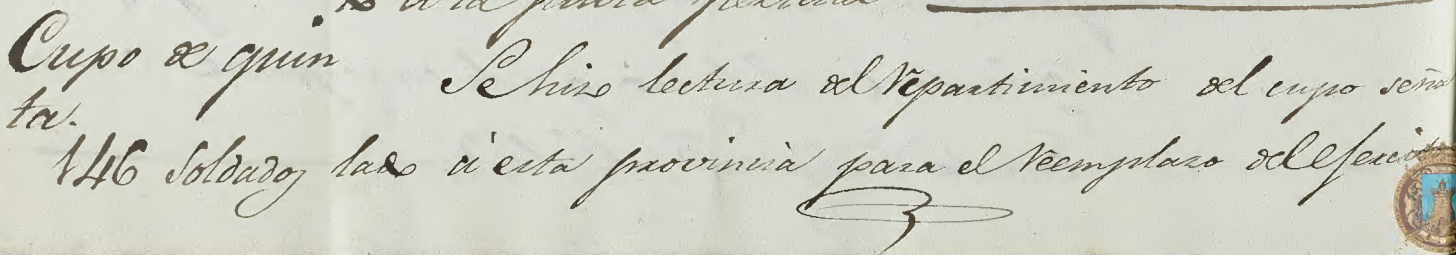 a la junta pericial
Cupo de quin
ta.
146 Soldados
Se hizo lectura del Repartimiento del cupo seña
lado á esta provincia para el Reemplazo del Ejercito